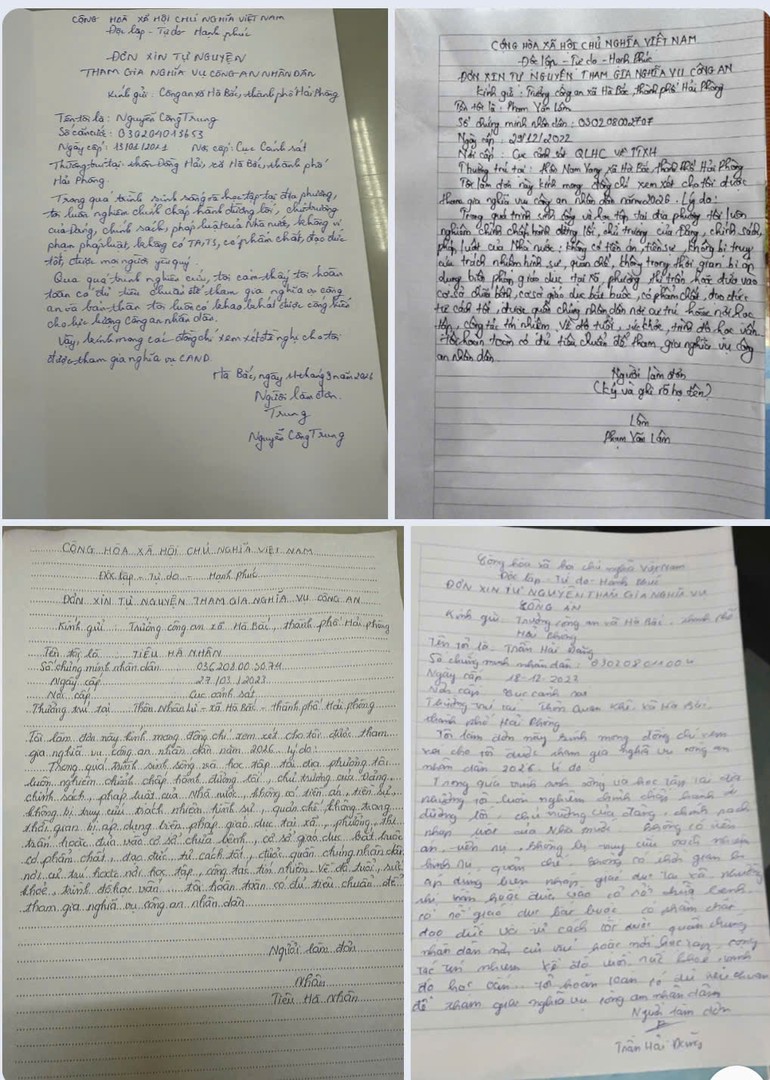 CỘNG HÒA XÃ HỘI CHỦ NGHĨA VIỆT NAM
Độc lập - Tự do Hạnh phúc
ĐƠN XIN TỰ NGUYỆN
THAM GIA NGHĨA VỤ CÔNG AN NHÂN DÂN
Kính gửi: Công an xã Hà Bắc, thành phố Hải Phòng
Tên tôi là: Nguyễn Công Trung
Số căn cước: 030204013653
Ngày cấp: Nơi cấp: Cục Cảnh sát
Thường trú tại: thôn Đông Hải, xã Hà Bắc, thành phố
Hải Phòng.
Trong quá trình sinh sống và học tập tại địa phương,
tôi luôn nghiêm chỉnh chấp hành đường lối, chủ trương
của Đảng, chính sách, pháp luật của Nhà nước, không vi
phạm pháp luật, không có TA, TS, có phẩm chất, đạo đức
tốt, được mọi người yêu quý.
Qua quá trình nghiên cứu, tôi cảm thấy tôi hoàn
toàn có đủ tiêu chuẩn để tham gia nghĩa vụ công
an và bản thân tôi luôn có khao khát được cống hiến
cho lực lượng công an nhân dân.
Vậy, kính mong các đồng chí xem xét đề nghị cho tôi
được tham gia nghĩa vụ CAND.
Hà Bắc, ngày tháng 3 năm 2026
Người làm đơn.
Trung
Nguyễn Công Trung
CỘNG HÒA XÃ HỘI CHỦ NGHĨA VIỆT NAM
Độc lập - Tự do - Hạnh Phúc
ĐƠN XIN TỰ NGUYỆN THAM GIA NGHĨA VỤ CÔNG AN
Kính gửi: Trưởng công an xã Hà Bắc, thành phố Hải Phòng
Tên tôi là: Phạm Văn Lâm
Số chứng minh nhân dân: 030208002707
Ngày cấp: 29/12/2022
Nơi cấp: Cục cảnh sát QLHC về TTXH
Thường trú tại: thôn Nam Vang, xã Hà Bắc, thành phố Hải Phòng
Tôi làm đơn này kính mong đồng chí xem xét cho tôi được
tham gia nghĩa vụ công an nhân dân năm 2026. Lý do:
Trong quá trình sinh sống và học tập tại địa phương tôi luôn
nghiêm chỉnh chấp hành đường lối, chủ trương của Đảng, chính sách,
pháp luật của Nhà nước; không có tiền án, tiền sự, không bị truy
cứu trách nhiệm hình sự, quản chế, không trong thời gian bị áp
dụng biện pháp giáo dục tại xã, phường, thị trấn hoặc đưa vào
cơ sở chữa bệnh, cơ sở giáo dục bắt buộc, có phẩm chất, đạo đức
tư cách tốt, được quần chúng nhân dân nơi cư trú hoặc nơi học
tập, công tác tín nhiệm. Về độ tuổi, sức khỏe, trình độ học vấn...
tôi hoàn toàn có đủ tiêu chuẩn để tham gia nghĩa vụ công
an nhân dân.
Người làm đơn
(Ký và ghi rõ họ tên)
Lâm
Phạm Văn Lâm
CỘNG HÒA XÃ HỘI CHỦ NGHĨA VIỆT NAM
Độc lập - Tự do - Hạnh phúc
ĐƠN XIN TỰ NGUYỆN THAM GIA NGHĨA VỤ CÔNG AN
Kính gửi: Trưởng công an xã Hà Bắc, thành phố Hải Phòng
Tên tôi là: TIÊU HÀ NHÂN
Số chứng minh nhân dân: 036208005074
Ngày cấp: 27/03/2023
Nơi cấp: Cục cảnh sát
Thường trú tại: Thôn Nhân Lư - xã Hà Bắc - thành phố Hải Phòng
Tôi làm đơn này kính mong đồng chí xem xét cho tôi được tham
gia nghĩa vụ công an nhân dân năm 2026. lý do:
Trong quá trình sinh sống và học tập tại địa phương tôi
luôn nghiêm chỉnh chấp hành đường lối, chủ trương của Đảng,
chính sách, pháp luật của Nhà nước, không có tiền án, tiền sự,
không bị truy cứu trách nhiệm hình sự, quản chế, không trong
thời gian bị áp dụng biện pháp giáo dục tại xã, phường, thị
trấn hoặc đưa vào cơ sở chữa bệnh, cơ sở giáo dục bắt buộc
có phẩm chất, đạo đức tư cách tốt, được quần chúng nhân dân
nơi cư trú hoặc nơi học tập, công tác tín nhiệm. Về độ tuổi, sức
khỏe, trình độ học vấn... tôi hoàn toàn có đủ tiêu chuẩn để
tham gia nghĩa vụ công an nhân dân
Người làm đơn
Nhân
Tiêu Hà Nhân
Cộng hòa xã hội chủ nghĩa Việt Nam
Độc lập - Tự do - Hạnh Phúc
ĐƠN XIN TỰ NGUYỆN THAM GIA NGHĨA VỤ
CÔNG AN
Kính gửi: Trưởng công an xã Hà Bắc, thành phố
Hải Phòng
Tên tôi là: Trần Hải Đăng
Số chứng minh nhân dân:
Ngày cấp
Nơi cấp: Cục cảnh sát
Thường trú tại: Thôn Quan Khê xã Hà Bắc
thành phố Hải Phòng
Tôi làm đơn này kính mong đồng chí xem
xét cho tôi được tham gia nghĩa vụ công an
nhân dân 2026. Lí do:
Trong quá trình sinh sống và học tập tại địa
phương tôi luôn nghiêm chỉnh chấp hành
đường lối, chủ trương của Đảng, chính sách
pháp luật của Nhà nước không có tiền
án, tiền sự, không bị truy cứu trách nhiệm
hình sự, quản chế, không có thời gian bị
áp dụng biện pháp giáo dục tại xã phường
thị trấn hoặc đưa vào cơ sở chữa bệnh
cơ sở giáo dục bắt buộc có phẩm chất
đạo đức và tư cách tốt được quần chúng
nhân dân nơi cư trú hoặc nơi học tập, công
tác tín nhiệm. Về độ tuổi sức khỏe trình
độ học vấn... tôi hoàn toàn có đủ tiêu chuẩn
để tham gia nghĩa vụ công an nhân dân
Người làm đơn
Trần Hải Đăng